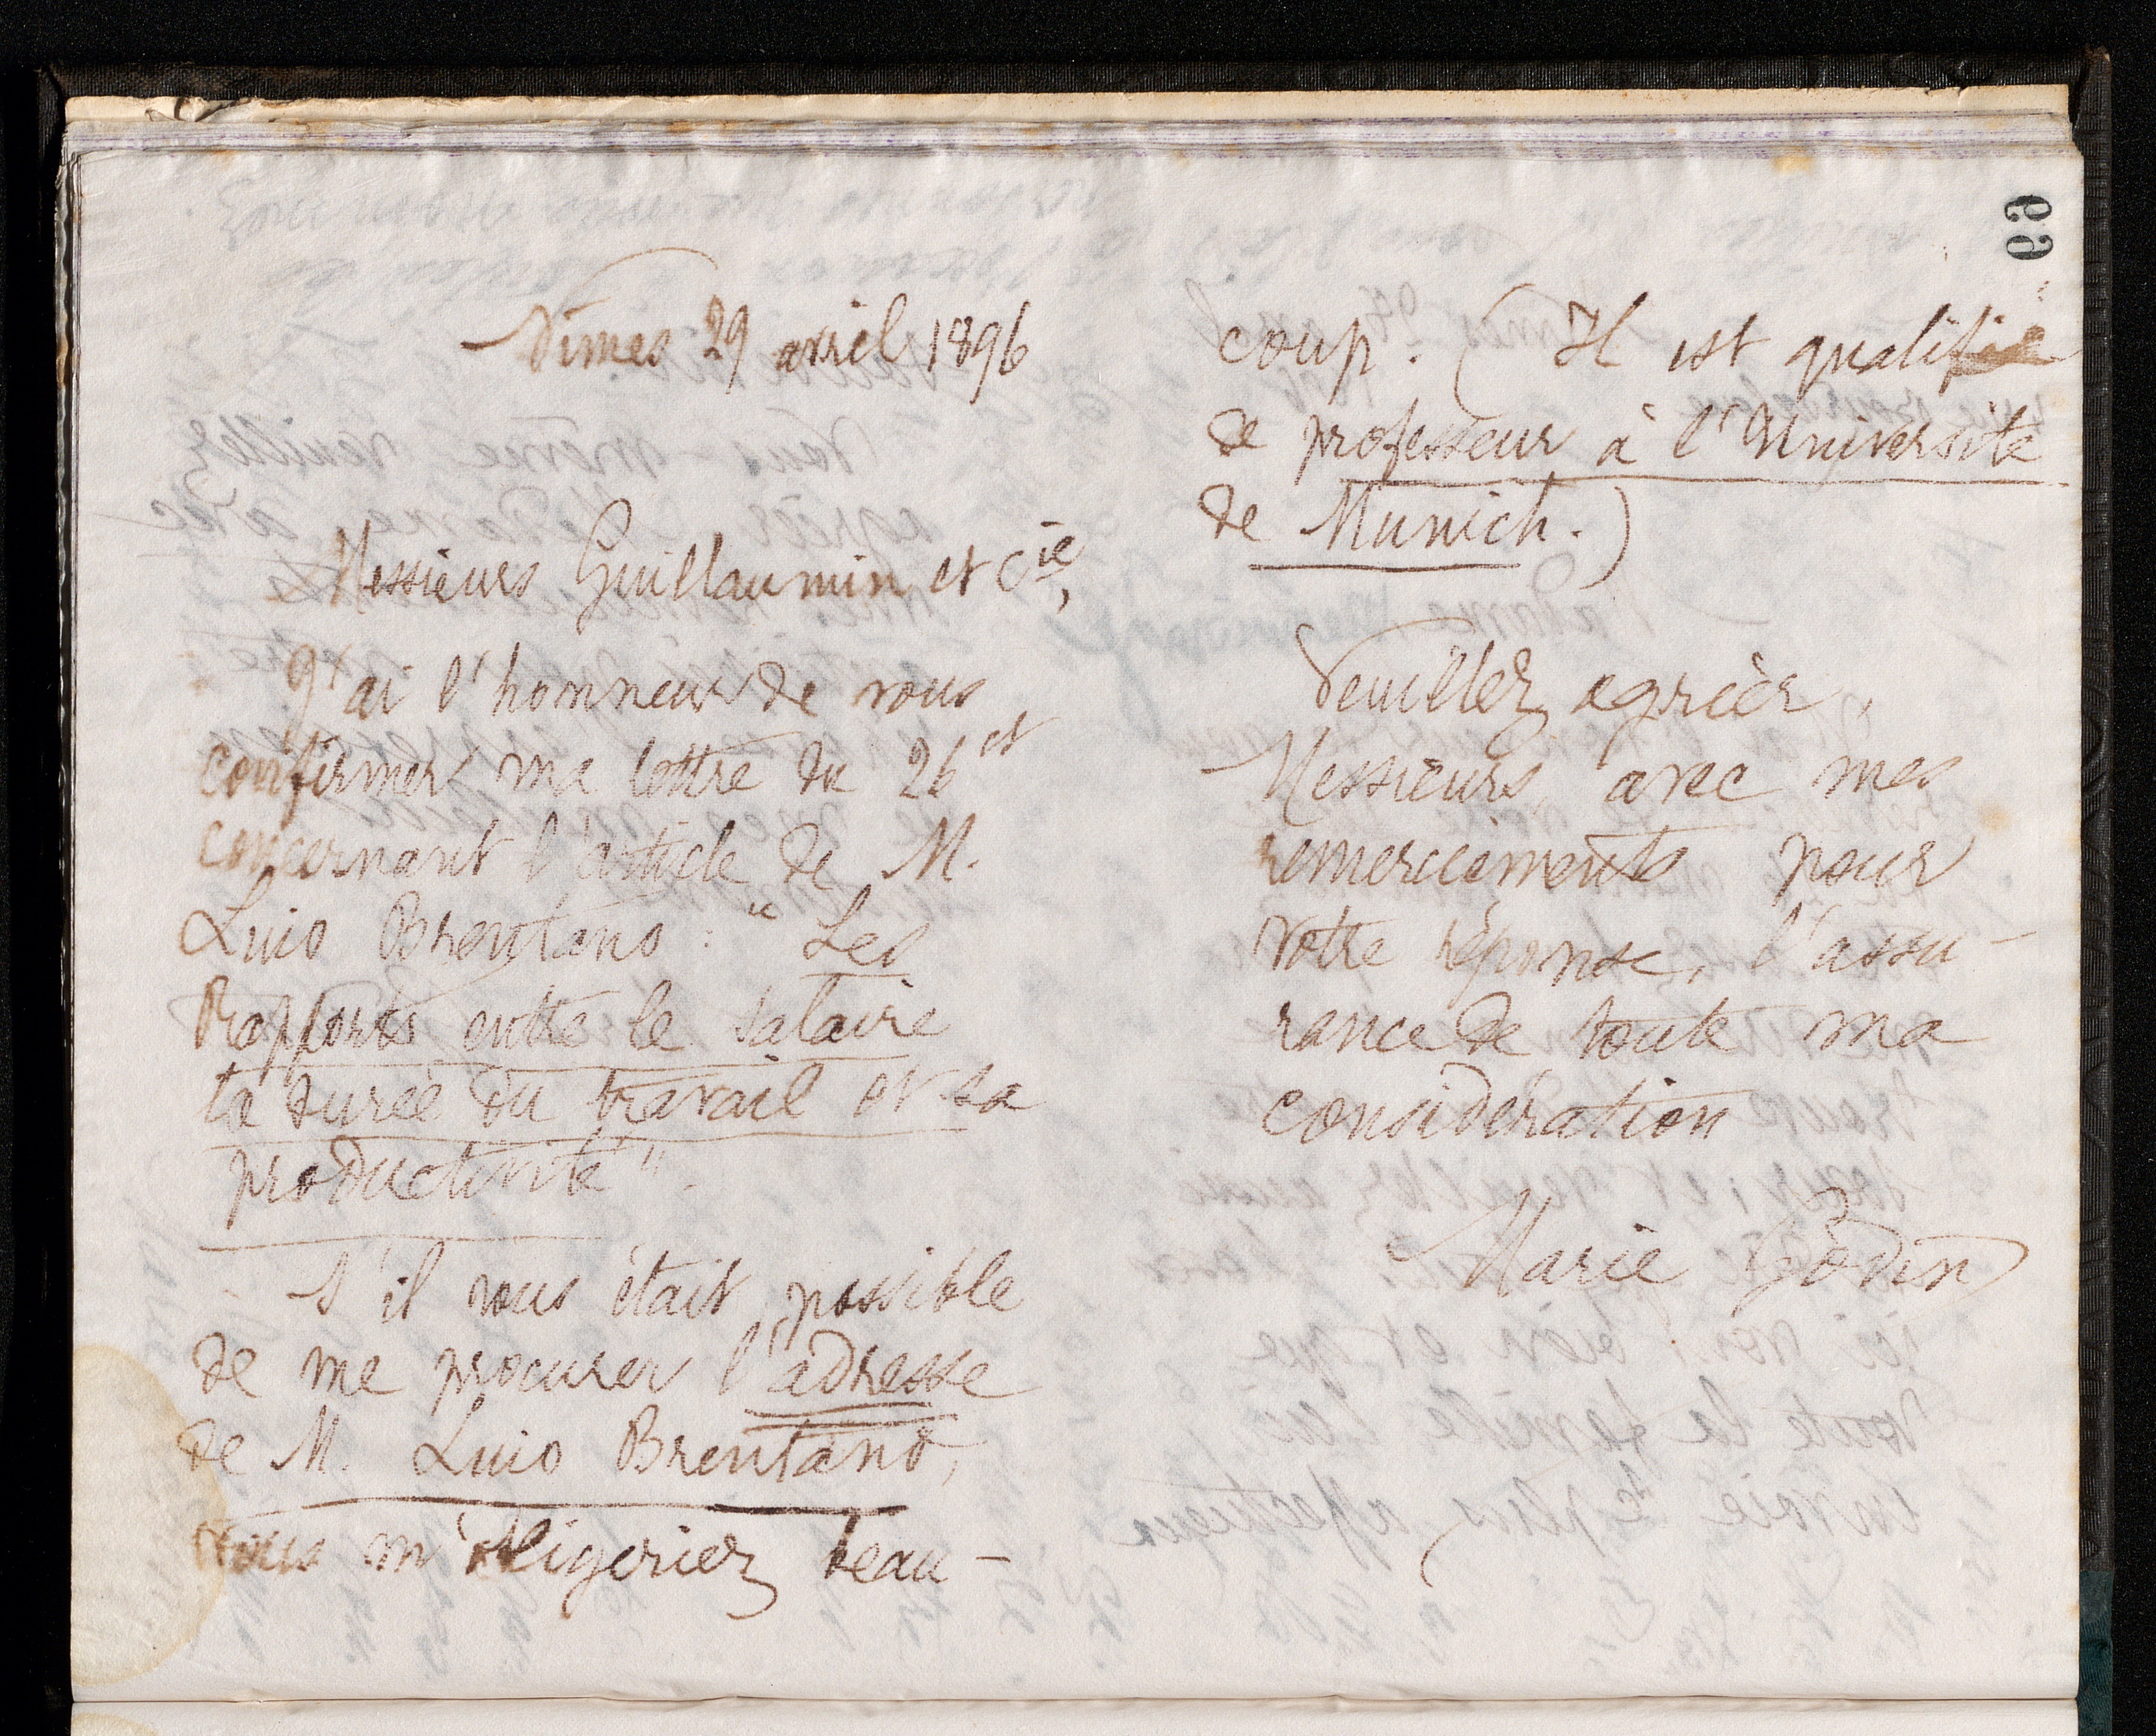 Nîmes 29 avril 1896
Messieurs Guillaumin et Cie,
J'ai l'honneur de vous
confirmer ma lettre du 26 ct
concernant l'article de M.
Luio Brentano : "Les
Rapports entre le salaire
la durée du travail et sa
productivité".
S'il vous était possible
de me procurer l'adresse
de M. Luio Brentano,
vous m'obligeriez beau-
coup. (Il est qualifié
de professeur à l'Université
de Munich.)
Veuillez agréer,
Messieurs, avec mes
remerciements pour
votre réponse, l'assu-
rance de toute ma
considération
Marie Godin
69